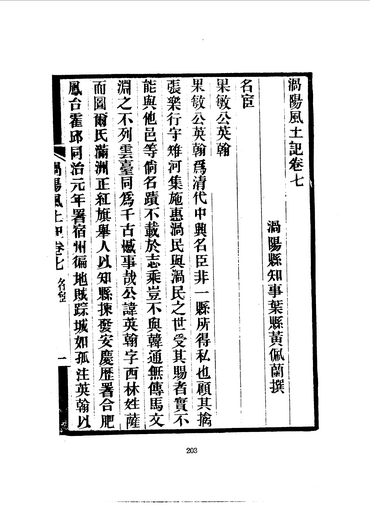 渦陽風土記卷七
渦陽縣知事葉縣黃佩蘭撰
名宦
果敏公英翰
果敏公英翰爲清代中興名臣非一縣所得私也顧其擒
張樂行字雉河集施惠渦民與渦民之世受其賜者實不
能與他邑等倘名蹟不載於志乘豈不與韓通無傳馬文
淵之不列雲臺同爲千古憾事哉公諱英翰字西林姓薩
爾圖氏滿洲正紅旗舉人以知縣揀發安慶歷署合肥
鳳台霍邱同治元年署宿州徧地賊踪城如孤注英翰以
渦陽風土記卷七 名宦 一
203